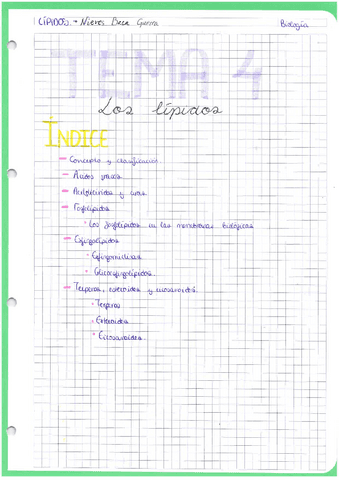 LÍPIDOS. - Nieves Baca Garcia
Biología
TEMA 4
Los lípidos
ÍNDICE
- Concepto y clasificación.
- Ácidos grasos
- Acilglicéridos y ceras
- Fosfolípidos
· Los fosfolípidos en las membranas biológicas
- Esfingolípidos
· Esfingomielinas
· Glucoesfingolípidos.
- Terpenos, esteroides y eicosanoides.
· Terpenos
· Esteroides
· Eicosanoides.